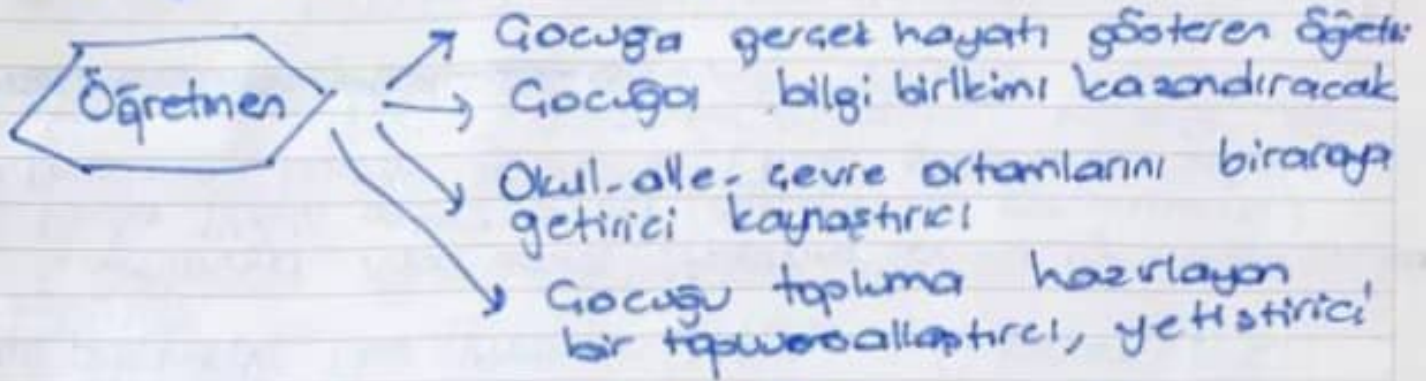 Öğretmen
Çocuğa gerçek hayatı gösteren öğretici
Çocuğa bilgi birikimi kazandıracak
Okul-aile-çevre ortamlarını biraraya
getirici kaynaştırıcı
Çocuğu topluma hazırlayan
bir toplumsallaştırıcı, yetiştirici